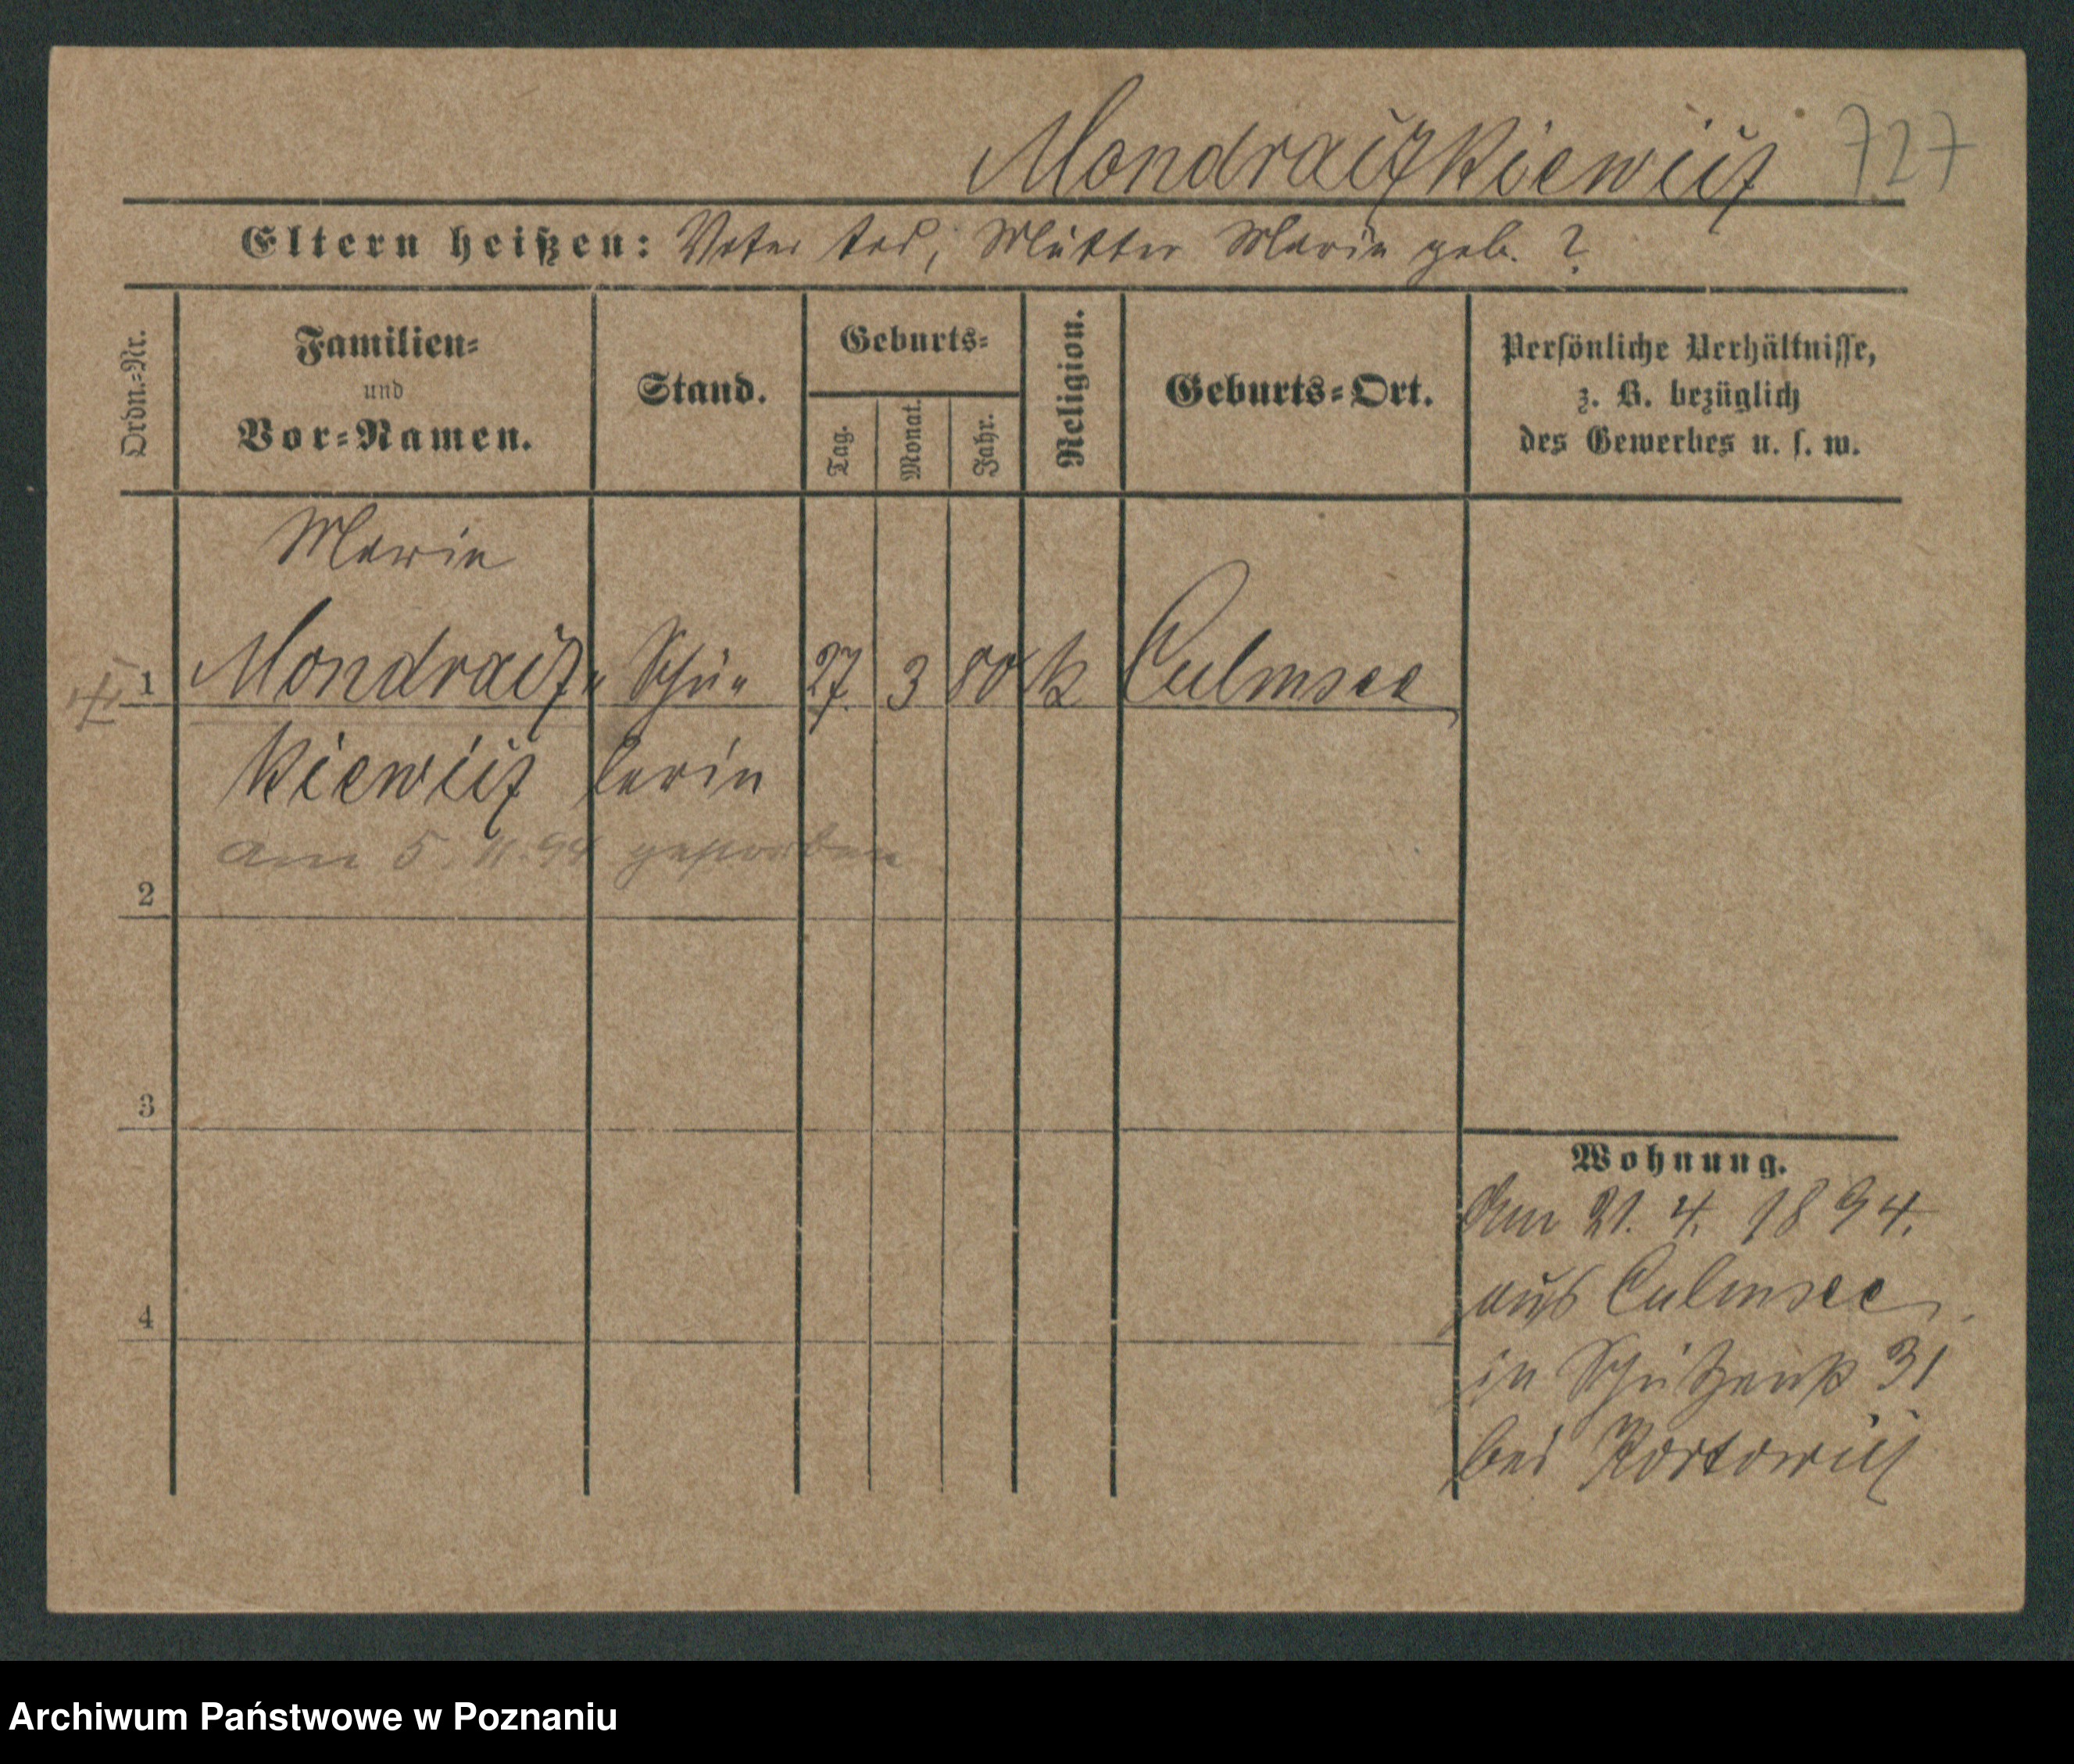 Mondraczkiewicz 727
Eltern heißen: Vater tod, Mutter Marie geb. ?
Ordn.-Nr.
Familien-
und
Vor-Namen.
Stand.
Geburts-
Tag.
Monat.
Jahr.
Religion.
Geburts-Ort.
Persönliche Verhältnisse,
z. B. bezüglich
des Gewerbes u. s. w.
Marie
1 Mondracz- Schü- 27. 3 80 k Culmsee
kiewicz lerin
am 5. 11. 94 gestorben
2
3
4
Wohnung.
Am 21. 4. 1894.
aus Culmsee
in Schützenst 31
bei
Archiwum Państwowe w Poznaniu